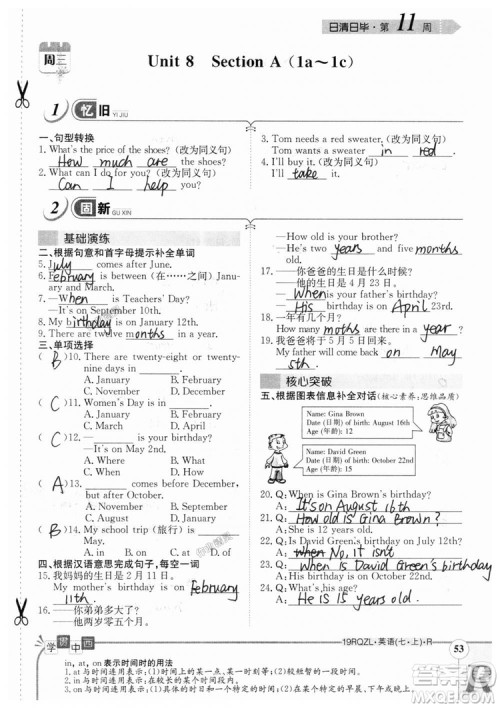 日清日毕·第11周
周三
Unit 8 Section A (1a~1c)
1 忆旧 YI JIU
一、句型转换
1. What's the price of the shoes?(改为同义句)
How much are the shoes?
2. What can I do for you?(改为同义句)
Can I help you?
3. Tom needs a red sweater.(改为同义句)
Tom wants a sweater in red.
4. I'll buy it.(改为同义句)
I'll take it.
2 固新 GU XIN
基础演练
二、根据句意和首字母提示补全单词
5. July comes after June.
6. February is between(在……之间)Janu-
ary and March.
7. —When is Teachers' Day?
—It's on September 10th.
8. My birthday is on January 12th.
9. There are twelve months in a year.
三、单项选择
( B )10. There are twenty-eight or twenty-
nine days in ______.
A. January B. February
C. November D. December
( C )11. Women's Day is in ______.
A. January B. February
C. March D. May
( C )12. —______ is your birthday?
—It's on May 2nd.
A. Where B. What
C. When D. How
( A )13. ______ comes before December,
but after October.
A. November B. July
C. August D. April
( B )14. My school trip (旅行) is ______
May.
A. on B. in C. at D. to
四、根据汉语意思完成句子,每空一词
15. 我妈妈的生日是2月11日。
My mother's birthday is on February
11th.
16. —你弟弟多大了?
—他两岁零五个月。
—How old is your brother?
—He's two years and five months.
17. —你爸爸的生日是什么时候?
—他的生日是4月23日。
—When is your father's birthday?
—His birthday is on April 23rd.
18. 一年有几个月?
How many moths are there in a year?
19. 我爸爸将于5月5日回来。
My father will come back on May
5th.
核心突破
五、根据图表信息补全对话(核心素养:思维品质)
Name: Gina Brown
Date (日期) of birth: August 16th
Age (年龄): 12
Name: David Green
Date (日期) of birth: October 22nd
Age (年龄): 15
20. Q: When is Gina Brown's birthday?
A: It's on August 16th
21. Q: How old is Gina Brown?
A: She is 12.
22. Q: Is David Green's birthday on July 12th?
A: No, it isn't
23. Q: When is David Green's birthday
A: His birthday is on October 22nd.
24. Q: What's his age?
A: He is 15 years old.
学贯中西
19RQZL·英语(七·上)·R
53
in, at, on 表示时间时的用法